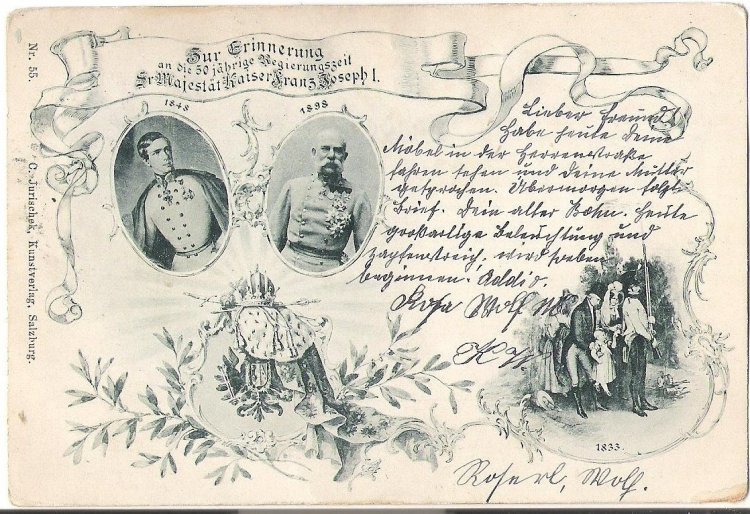 Zur Erinnerung
an die 50 jährige Regierungszeit
Sr Majestät Kaiser Franz Joseph I.
1848
1898
Nr. 55.
C. Jurischek, Kunstverlag, Salzburg.
Lieber Freund!
Habe heute deine
Möbel in der Herrenstraße
fahren sehen und deine Mutter
gesprochen. Übermorgen folgt
Brief. Dein alter Böhm. Heute
großartige Beleuchtung und
Zapfenstreich, wird soeben
beginnen. Addio.
Rosa Wolf
1833.
Roserl, Wolf.